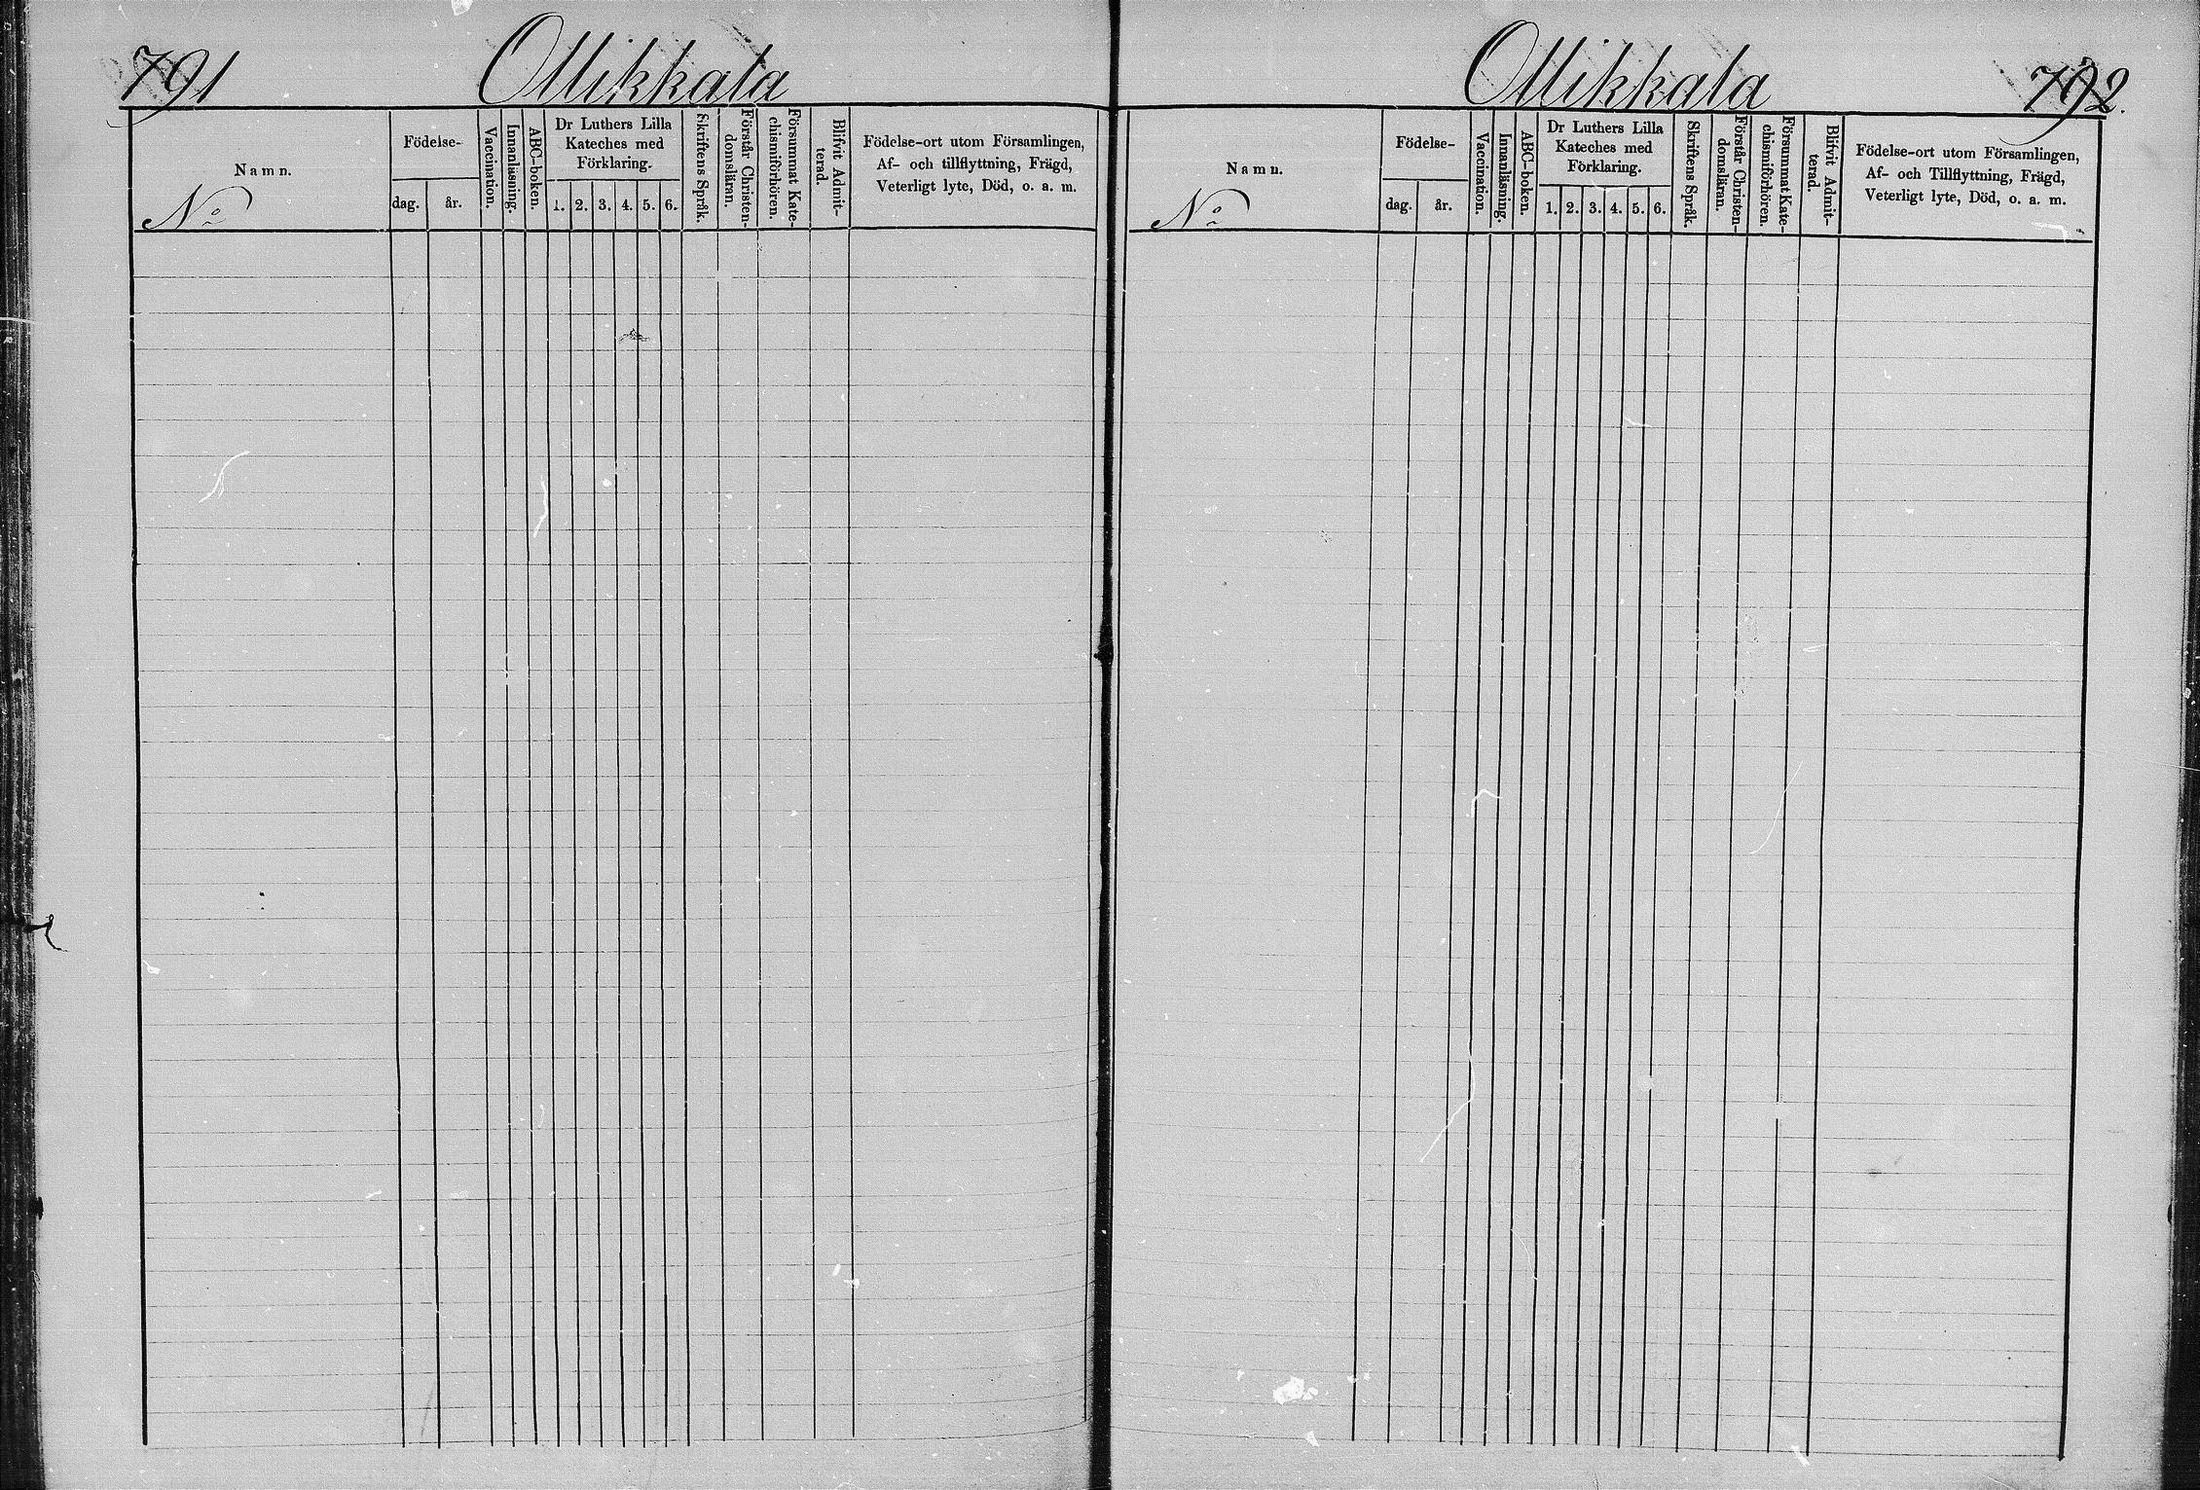 791 Ollikkala
Namn.
No
Födelse-
dag. år.
Vaccination.
Innanläsning.
ABC-boken.
Dr Luthers Lilla
Kateches med
Förklaring.
1. 2. 3. 4. 5. 6.
Skriftens Språk.
Förstår Christen-
domsläran.
Försummat Kate-
chismiförhören.
Blifvit Admit-
terad.
Födelse-ort utom Församlingen,
Af- och tillflyttning, Frägd,
Veterligt lyte, Död, o. a. m.
Ollikkala 792.
Namn.
No
Födelse-
dag. år.
Vaccination.
Innanläsning.
ABC-boken.
Dr Luthers Lilla
Kateches med
Förklaring.
1. 2. 3. 4. 5. 6.
Skriftens Språk.
Förstår Christen-
domsläran.
Försummat Kate-
chismiförhören.
Blifvit Admit-
terad.
Födelse-ort utom Församlingen,
Af- och Tillflyttning, Frägd,
Veterligt lyte, Död, o. a. m.